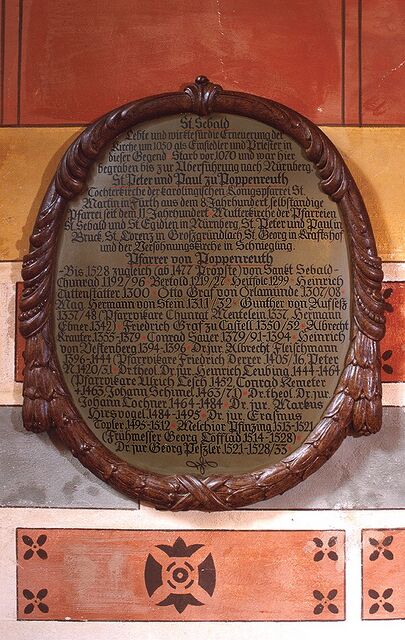 St. Sebald
Lebte und wirkte für die Erneuerung der
Kirche um 1050 als Einsiedler und Priester in
dieser Gegend. Starb vor 1070 und war hier
begraben bis zur Überführung nach Nürnberg.
St. Peter und Paul zu Poppenreuth
Tochterkirche der karolingischen Königspfarrei St.
Martin in Fürth aus dem 8. Jahrhundert, selbständige
Pfarrei seit dem 11. Jahrhundert. Mutterkirche der Pfarreien
St. Sebald und St. Egidien in Nürnberg, St. Peter und Paul in
Bruck, St. Lorenz in Großgründlach, St. Georg in Kraftshof
und der Versöhnungskirche in Schniegling.
Pfarrer von Poppenreuth
- Bis 1528 zugleich (ab 1477 Pröpste) von Sankt Sebald -
Chunrad 1192/96 Bertold 1219/27 Heitfolc 1295 Heinrich
Tuttenstätter 1300 Otto Graf von Orlamünde 1307/08
Mag. Hermann von Stein 1311/32 Gunther von Aufseß
1337/48 (Pfarrvikare Chunrat Mentelein 1337, Hermann
Ebner 1342) Friedrich Graf zu Castell 1350/52 Albrecht
Krauter 1355-1379 Conrad Sauer 1379/91-1394 Heinrich
Vestenberg 1394-1396 Dr. jur. Albrecht Fleischmann
1396-1444 (Pfarrvikare Friedrich Derrer 1405/16, Peter
N. 1420/31) Dr. theol. Dr. jur. Heinrich Leubing 1444-1464
(Pfarrvikare Ulrich Lesch 1452, Conrad Kemeter
+1463, Johann Schriml 1463/?) Dr. theol. Dr. jur.
Johann Lochner 1464-1484 Dr. jur. Markus
Hirsvogel 1484-1495 Dr. jur. Erasmus
Topler 1495-1512 Melchior Pfinzing 1513-1521
(Frühmesser Georg Löfflad 1514-1528)
Dr. jur. Georg Peßler 1521-1528/33